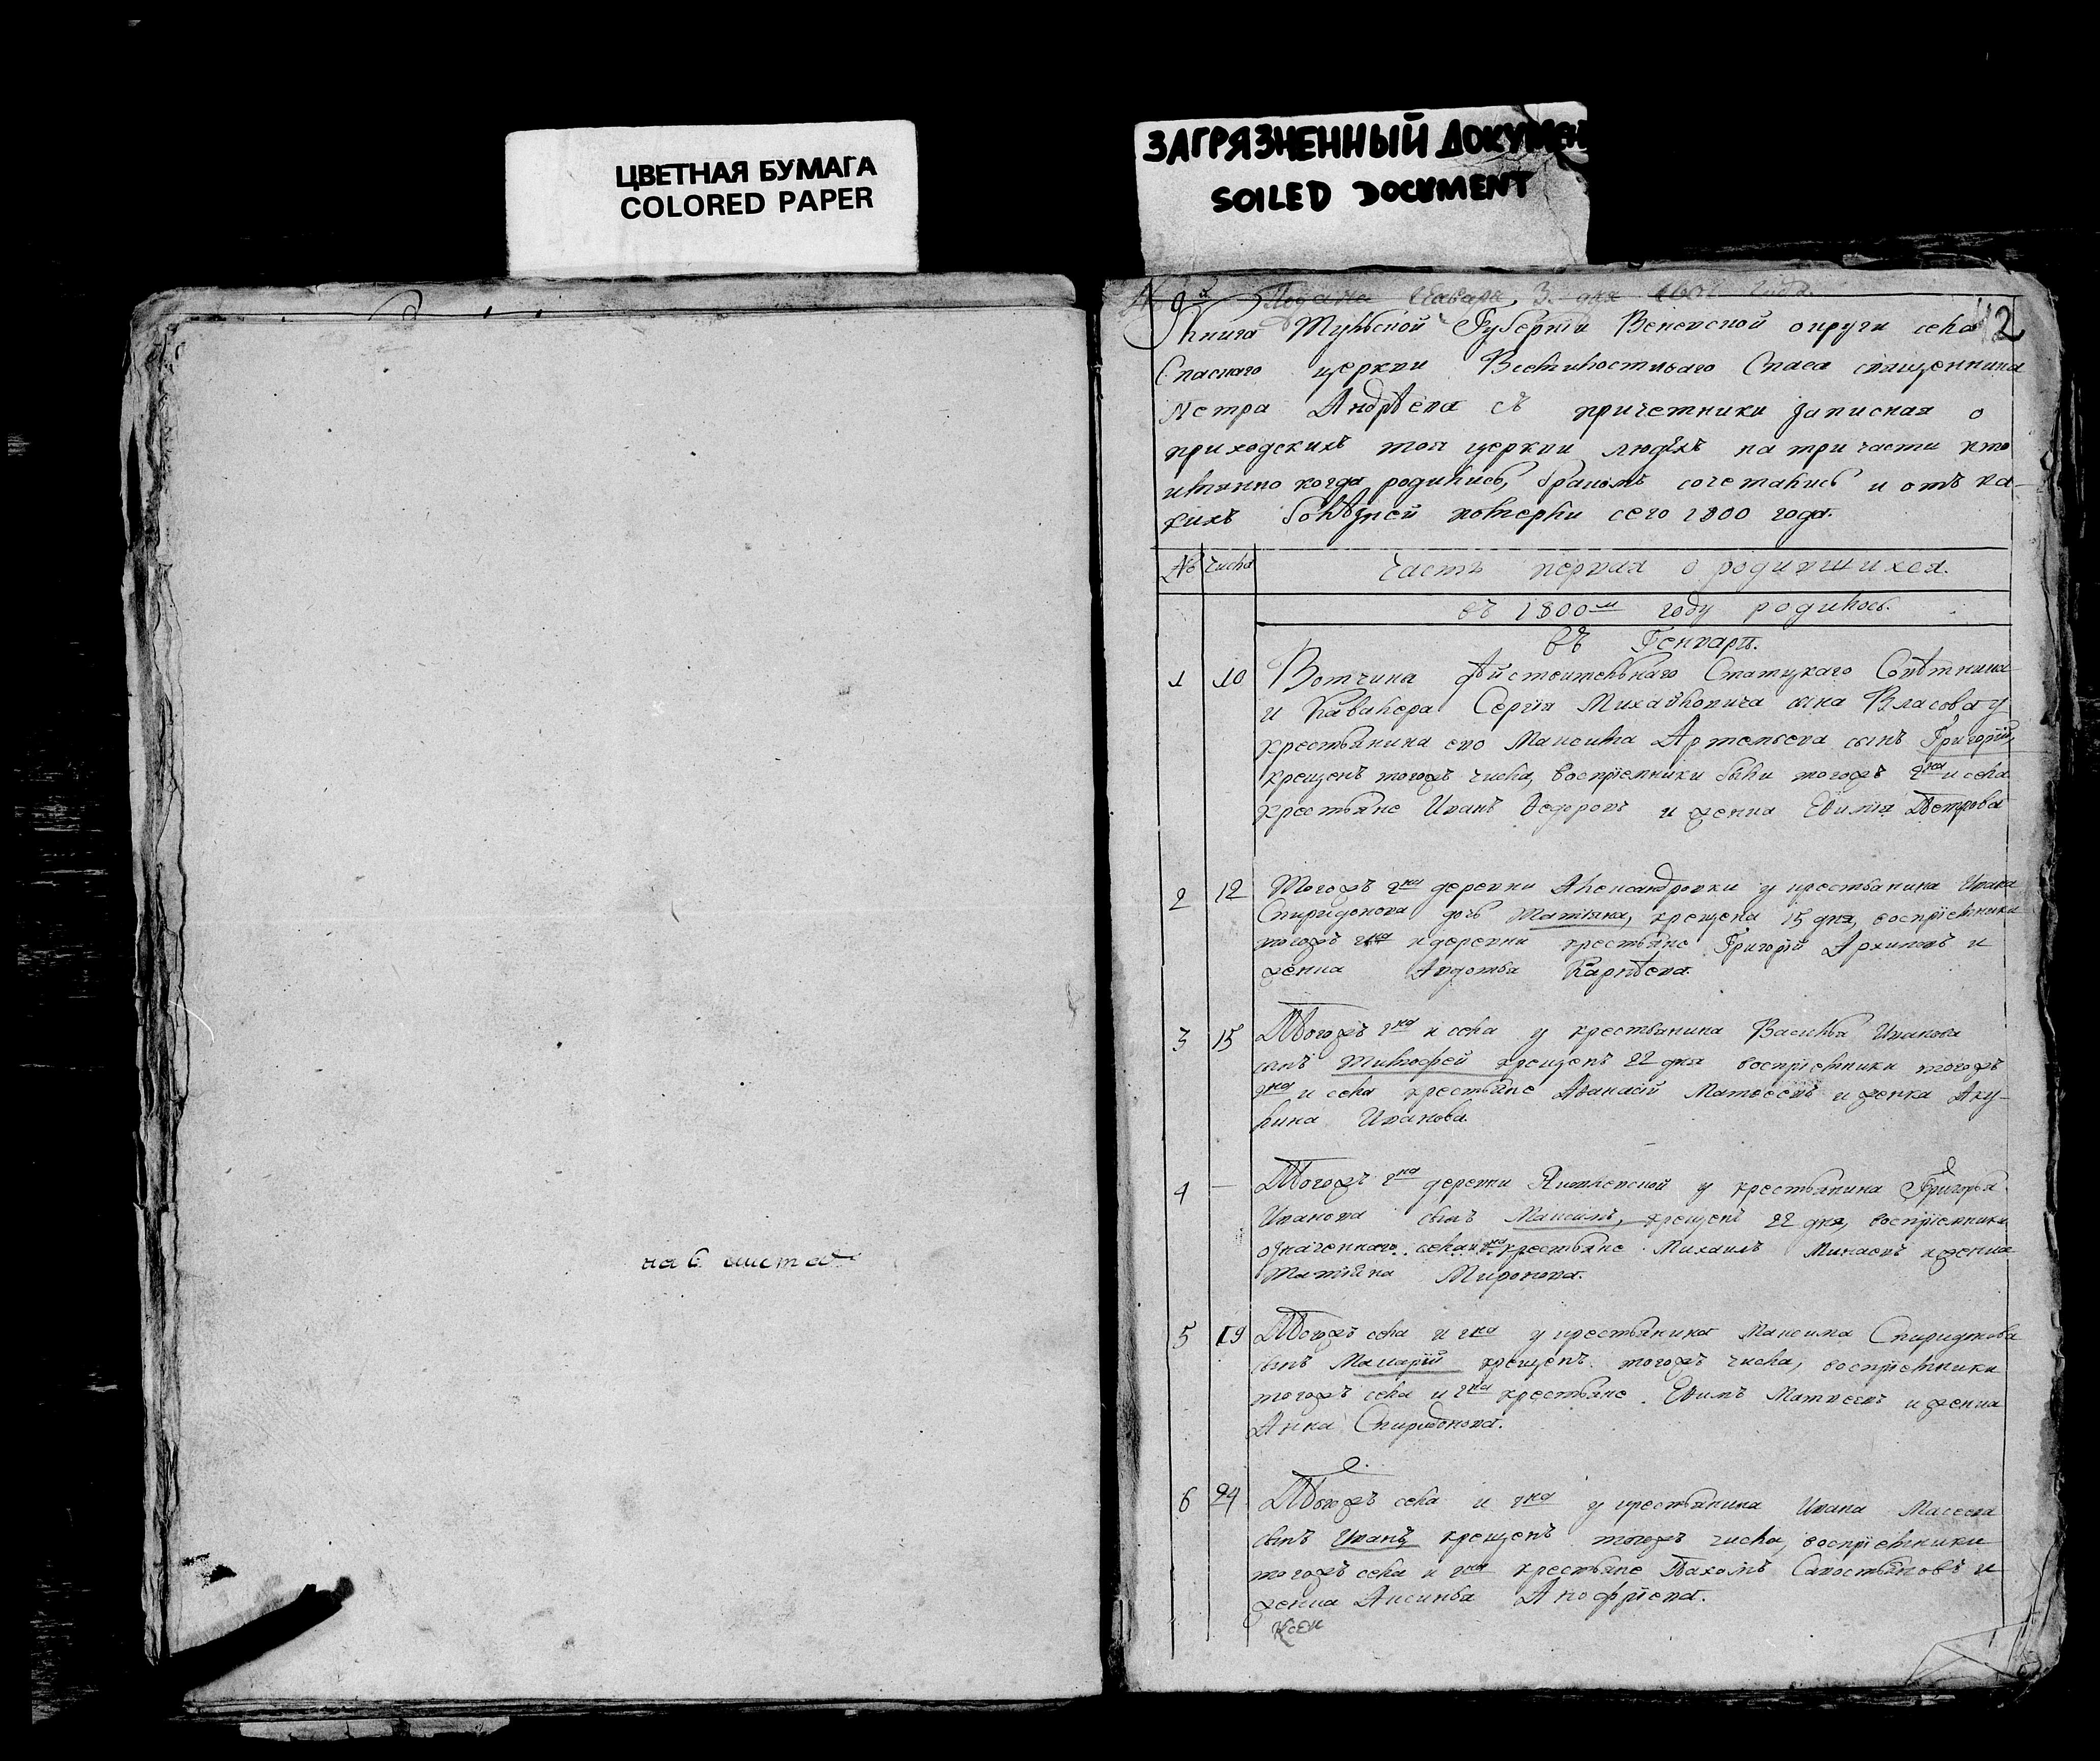 ЦВЕТНАЯ БУМАГА
COLORED PAPER
ЗАГРЯЗНЕННЫЙ ДОКУМЕН
SOILED DOCUMENT
на 6 листах
Подана Генваря 3 дня 1801 года.
12
Книга Тульской Губерніи Веневской округи села
Спаскаго церкви Всемилостиваго Спаса священника
Петра Андрѣева съ причетники записная о
приходскихъ той церкви людѣхъ на три части кто
имянно когда родились, бракомъ сочетались и отъ ка-
кихъ болѣзней померли сего 1800 года.
№ Числа Часть первая о родившихся.
въ 1800м году родилось.
въ Генварѣ.
1 10 Вотчина дѣйствительнаго Статцкаго Совѣтника
и Кавалера Сергія Михайловича сына Власова у
крестьянина ево Максима Артемьева сынъ Григорій,
крещенъ тогожъ числа, воспріемники были тогожъ гна и села
крестьяне Иванъ Ѳедоровъ и женка Евѳимія Петрова
2 12 Тогожъ гна деревни Александровки у крестьянина Ивана
Спиридонова дочь Татіяна, крещена 15 дня, воспріемники
тогожъ гна и деревни крестьяне Григорій Архиповъ и
женка Авдотья Карнѣева.
3 15 Тогожъ гна и села у крестьянина Василья Иванова
сынъ Тимофей крещенъ 22 дня воспріемники тогожъ
гна и села крестьяне Аѳанасій Матвеевъ и женка Аку-
лина Иванова.
4 — Тогожъ гна деревни Яковлевской у крестьянина Григорья
Иванова сынъ Максимъ, крещенъ 22 дня, воспріемники
означеннаго села и гна крестьяне Михаилъ Минаевъ и женка
Татіяна Миронова.
5 19 Тогожъ села и гна у крестьянина Максима Спиридонова
сынъ Макарій крещенъ тогожъ числа, воспріемники
тогожъ села и гна крестьяне Еѳимъ Матвеевъ и женка
Анна Спиридонова.
6 24 Тогожъ села и гна у крестьянина Ивана Масеева
сынъ Иванъ крещенъ тогожъ числа, воспріемники
тогожъ села и гна крестьяне Пахомъ Савостьяновъ и
женка Аксинья Анофріева.